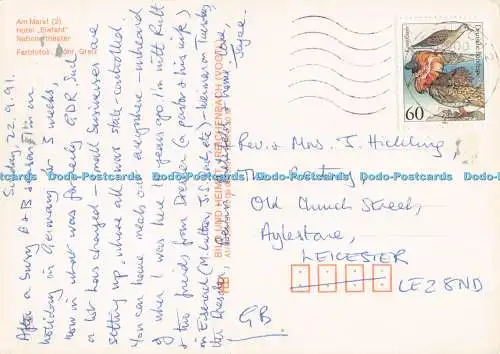 Am Markt (2)
Hotel „Elefant"
Nationaltheater
Farbfotos: Greiz
Sunday, 22.9.91.
After a busy I'm on
holiday in Germany for 3 weeks
now in what was formerly GDR. And
a lot has changed – small businesses are
setting up, where all was state-controlled.
You can hear meals out anywhere – unheard
of when I was here 10 years ago. I'm with Ruth
& two friends from Dresden (a pastor & his wife)
in Eisenach (M. Luther, J.S. Bach, etc) – Weimar on Tuesday
then Dresden, Berlin & home. Love,
Joyce.
BILD UND HEIMAT REICHENBACH (VOGTL)
60
Rev. & Mrs. J. Hickling
The Rectory,
Old Church Street,
Aylestone,
LEICESTER
LE2 8ND
GB.
Dodo-Postcards Dodo-Postcards Dodo-Postcards Dodo-Postcards Dodo-Postcards